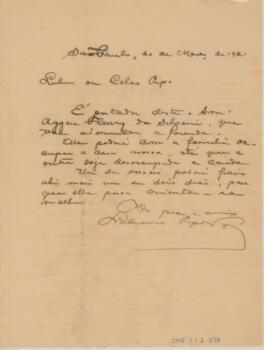 São Paulo, 20 de Março de 192
Lulu ou Celso
É portador desta o Snr.
Aggeu Fleury da Silveira, que
vae administrar a fazenda.
Elle poderá com a familia oc-
cupar a casa nossa, até que a
outra seja desoccupada e caiada.
Um de vocês poderá ficar
ahi mais um ou dois dias, para
que elle possa orientar-se
melhor.